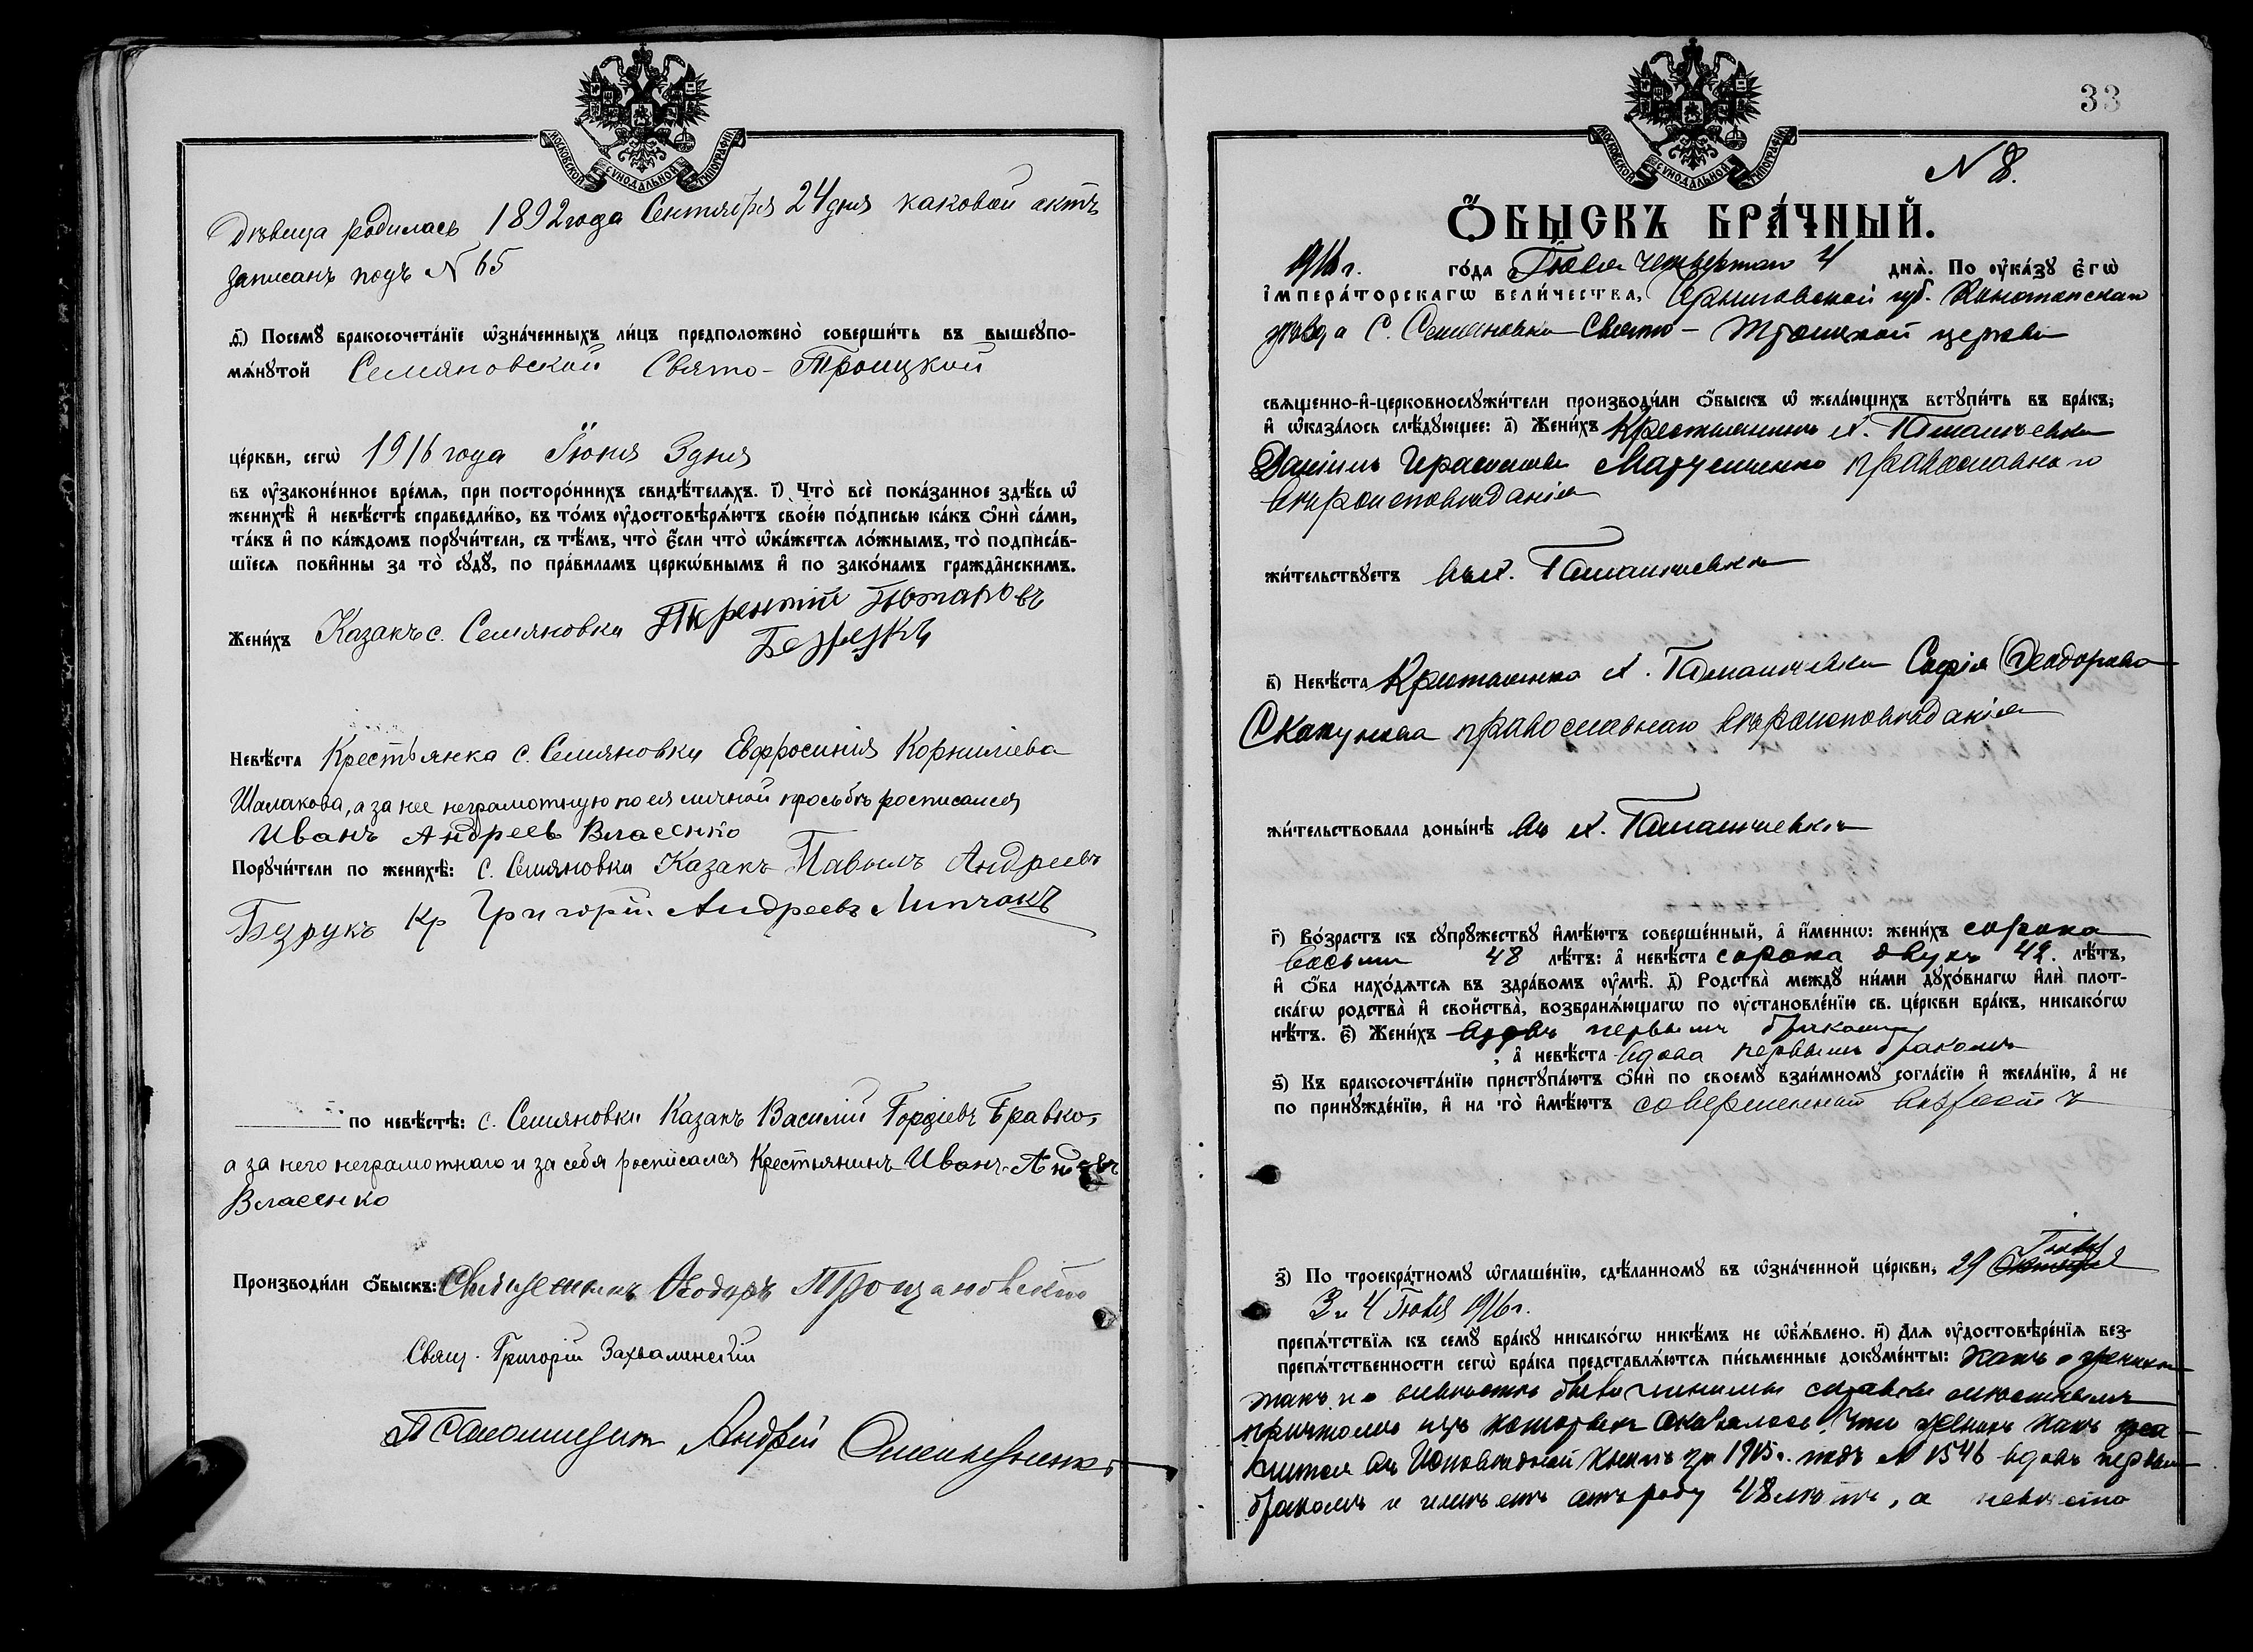 МОСКОВСКОЙ СѴНОДАЛЬНОЙ ТИПОГРАФІИ
Дѣвица родилась 1892 года Сентября 24 дня каковой актъ
записанъ подъ N 65
д҃) Посемꙋ бракосочета́нїе ѡ҆зна́ченныхъ ли́цъ предположено̀ соверши́ть въ вышеꙋпо-
мѧ́нꙋтой Семяновской Свято-Троицкой
це́ркви, сегѡ̀ 1916 года Іюня 3 дня
въ ᲂу҆зако́ненное вре́мѧ, при посторо́ннихъ свидѣ́телѧхъ. і҃) Что̀ всѐ пока́занное здѣ́сь ѡ҆
женихѣ̀ и҆ невѣ́стѣ справедли́во, въ то́мъ ᲂу҆достовѣрѧ́ютъ свое́ю по́дписью ка́къ ѻ҆нѝ са́ми,
та́къ и҆ по ка́ждомъ порꙋчи́тели, съ тѣ́мъ, что̀ є҆́сли что̀ ѡ҆ка́жетсѧ ло́жнымъ, то̀ подписа́в-
шїесѧ пови́нны за то̀ сꙋдꙋ̀, по пра́виламъ церкѡ́внымъ и҆ по зако́намъ гражда̂нскимъ.
Жени́хъ Казакъ с. Семяновки Терентій Потаповъ
Безрукъ
Невѣ́ста Крестьянка с. Семяновки Евфросинія Корниліева
Шалакова, а за нее неграмотную по ея личной просьбѣ росписался
Иванъ Андреевъ Власенко
Порꙋчи́тели по женихѣ̀: с. Семяновки Казакъ Павелъ Андреевъ
Безрукъ Кр Григорій Андреевъ Липчакъ
по невѣ́стѣ: с. Семяновки Казакъ Василій Гордіевъ Бравко,
а за него неграмотнаго и за себя росписался Крестьянинъ Иванъ Андревъ
Власенко
Производи́ли ѻ҆́быскъ: Священникъ Ѳеодоръ
Свящ. Григорій Захвалинскій
Псаломщикъ Андрій
33
МОСКОВСКОЙ СѴНОДАЛЬНОЙ ТИПОГРАФІИ
N 8.
Ѻ҆́БЫСКЪ БРА́ЧНЫЙ.
1916 г. го́да Іюля четвертаго 4 днѧ̀. По ᲂу҆ка́зꙋ є҆гѡ̀
і҆мпера́торскагѡ вели́чества, Черниговской губ. Конотопскаго
уѣзда С. Семяновки Свято-Троицкой церкви
свѧще́нно-и҆-церковнослꙋжи́тели производи́ли ѻ҆́быскъ ѡ҆ жела́ющихъ встꙋпи́ть въ бра́къ;
и҆ ѡ҆каза́лось слѣ́дꙋющее: а҃) Жени́хъ Крестьянинъ х.
Даніилъ Герасимовъ православнаго
вѣроисповѣданія
жи́тельствꙋетъ въ х.
в҃) Невѣ́ста Крестьянка х. Софія Ѳеодорова
православнаго вѣроисповѣданія
жи́тельствовала доны́нѣ въ х.
г҃) Во́зрастъ къ сꙋпрꙋ́жествꙋ и҆мѣ́ютъ соверше́нный, а҆ и҆́меннѡ: жени́хъ сорока
восьми 48 лѣ́тъ: а҆ невѣ́ста сорока двухъ 42. лѣ́тъ,
и҆ ѻ҆́ба нахо́дѧтсѧ въ здра́вомъ ᲂу҆мѣ̀. д҃) Родства̀ междꙋ̀ ни́ми дꙋхо́внагѡ и҆лѝ плот-
ска́гѡ родства̀ и҆ свойства̀, возбранѧ́ющагѡ по ᲂу҆становле́нїю св. це́ркви бра́къ, никако́гѡ
нѣ́тъ. є҃) Жени́хъ вдовъ первымъ бракомъ
, а҆ невѣ́ста вдова первымъ бракомъ
ѕ҃) Къ бракосочета́нїю пристꙋпа́ютъ ѻ҆нѝ по своемꙋ̀ взаи́мномꙋ согла́сїю и҆ жела́нїю, а҆ не
по принꙋжде́нїю, и҆ на то̀ и҆мѣ́ютъ совершенный возрастъ
з҃) По троекра́тномꙋ ѡ҆глаше́нїю, сдѣ́ланномꙋ въ ѡ҆зна́ченной це́ркви, 29
3 и 4 Іюля 1916 г.
препѧ́тствїѧ къ семꙋ̀ бра́кꙋ никако́гѡ никѣ́мъ не ѡ҆б̾ѧ́влено. и҃) Длѧ ᲂу҆достовѣре́нїѧ без-
препѧ́тственности сегѡ̀ бра́ка представлѧ́ютсѧ пи́сьменные докꙋме́нты: какъ о женихѣ
такъ и о невѣстѣ были чинимы справки мѣстнымъ
причтомъ изъ которыхъ оказалось что женихъ какъ зна-
чится въ Исповѣдной книгѣ за 1915 г. подъ N 1546 вдовъ первымъ
бракомъ и имѣетъ отъ роду 48 лѣтъ, а невѣста